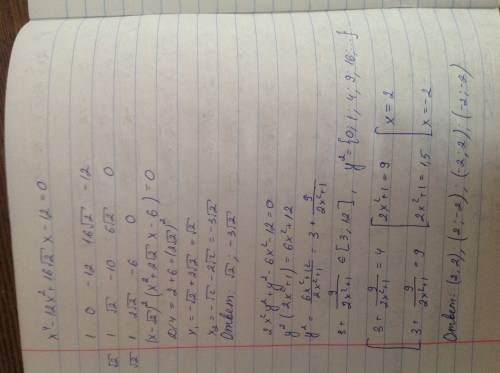 x⁴-12x²+16√2 x-12=0
1 0 -12 16√2 -12
√2 1 √2 -10 6√2 0
√2 1 2√2 -6 0
(x-√2)²(x²+2√2 x-6)=0
D/4=2+6=(2√2)²
x₁=-√2+2√2=√2
x₂=-√2-2√2=-3√2
Ответ: √2; -3√2
2x²y²+y²-6x²-12=0
y²(2x²+1)=6x²+12
y²= (6x²+12)/(2x²+1) = 3+ 9/(2x²+1)
3+ 9/(2x²+1) ∈ [3, 12], y²={0; 1; 4; 9; 16; ...}
[3+ 9/(2x²+1) =4 [2x²+1=9 [x=2
[3+ 9/(2x²+1) =9 [2x²+1=1,5 [x=-2
Ответ: (2;2), (2;-2), (-2;2); (-2;-2)